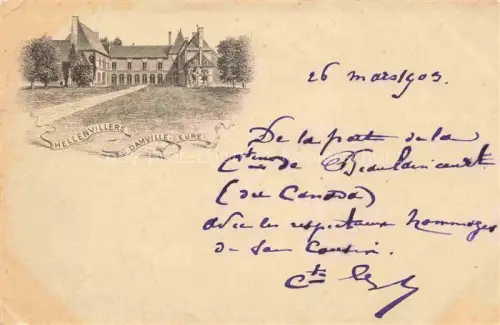 HELLENVILLERS
DAMVILLE EURE
26 mars 1903.
De la part de la
Ctesse de Beaulaincourt
(du Canada)
avec les respectueux hommages
de son Cousin.
Cte